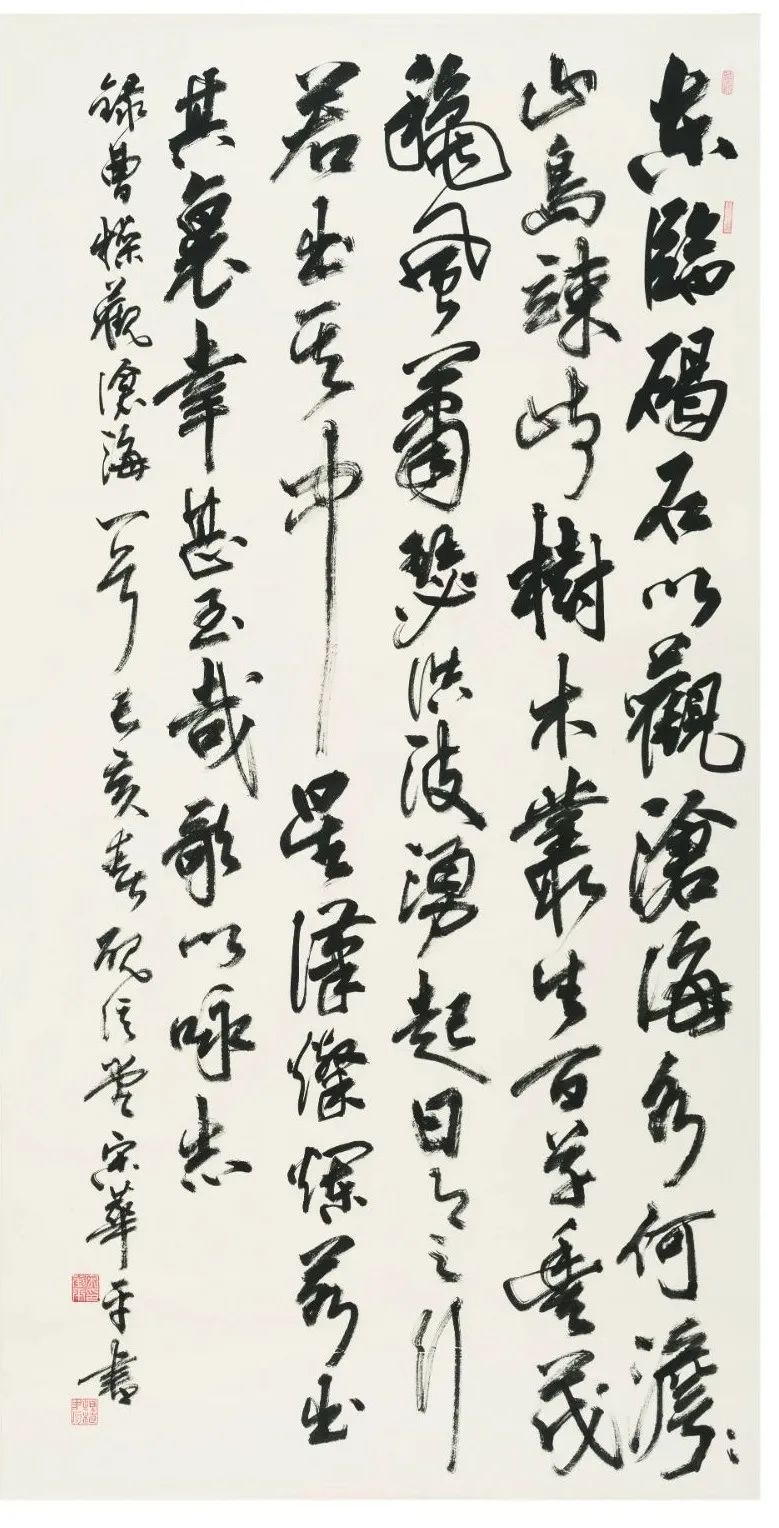 東臨碣石以觀滄海水何澹〻
山島竦峙樹木叢生百草豊茂
穐風蕭瑟洪波湧起日月之行
若出其中星漢燦爛若出
其裏幸甚至哉歌以咏志
録曹操觀滄海一首己亥春硯堂宋華平書